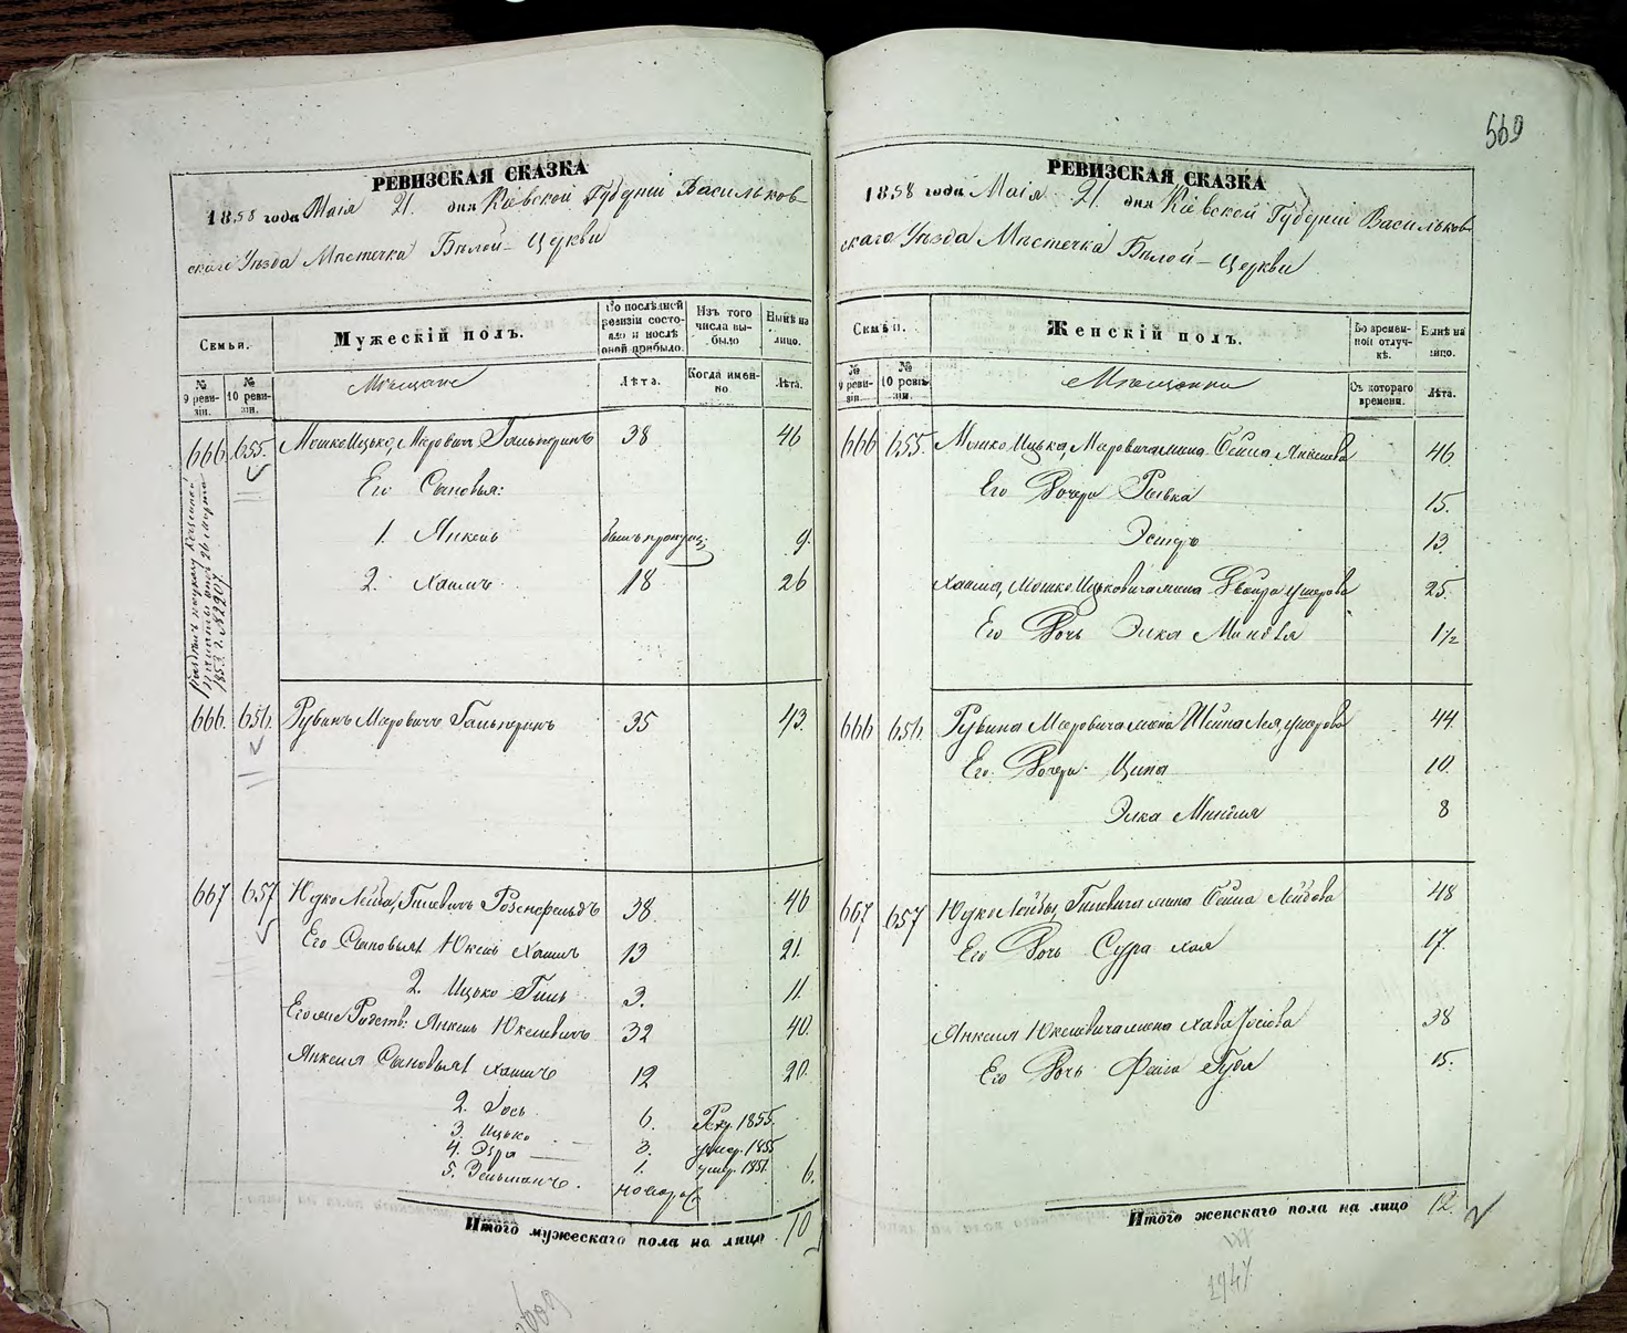 РЕВИЗСКАЯ СКАЗКА
1858 года Маія 21. дня Кіевской Губерніи Васильков-
скаго Уѣзда Мѣстечка Бѣлой-Церкви
Семьи.
Мужескій полъ.
По послѣдней ревизіи состояло и послѣ оной прибыло.
Изъ того числа выбыло
Нынѣ на лицо.
№ 9 ревизіи.
№ 10 ревизіи.
Мѣщане
Лѣта.
Когда именно
Лѣта.
666. 655. Мошко Ицько, Меровичъ Гальперинъ 38 46
Его Сыновья:
1. Янкель былъ пропущ: 9.
2. Хаимъ 18 26
1853 г. № 2207
666. 656. Рувинъ Меровичъ Гальперинъ 35 43.
667 657 Юдко Лейба, Гилевичъ Розенфельдъ 38. 46
Его Сыновья 1 Юкель Хаимъ 13 21.
2. Ицько Гиль 3. 11.
Его же Родств: Янкель Юкелевичъ 32 40.
Янкеля Сыновья 1 Хаимъ 12 20.
2. Іось 6. Рекр. 1855.
3. Ицько 3. умер. 1855
4. Эзра 1. умер. 1851.
5. Зельманъ. новорож 6.
Итого мужескаго пола на лицо 10
569
РЕВИЗСКАЯ СКАЗКА
1858 года Маія 21. дня Кіевской Губерніи Васильков-
скаго Уѣзда Мѣстечка Бѣлой-Церкви
Семьи.
Женскій полъ.
Во временной отлучкѣ.
Нынѣ на лицо.
№ 9 ревизіи.
№ 10 ревизіи.
Мѣщанки
Съ котораго времени.
Лѣта.
666 655. Мошко Ицька, Меровича жена Сейна Янкелева 46.
Его Дочери Ривка 15.
Эстеръ 13.
Хаима, Мошко Ицьковича жена Двойра Ушерова 25.
Его Дочь Элка Миндля 1½
666 656. Рувина Меровича жена Шейна Лея Ушерова 44.
Его Дочери Ципа 10.
Элка Миндля 8
667 657 Юдко Лейбы, Гилевича жена Сейна Лейбова 48
Его Дочь Сура Хая 17.
Янкеля Юкелевича жена Хава Іосіова 38
Его Дочь Фейга Руда 15.
Итого женскаго пола на лицо 12.
2747